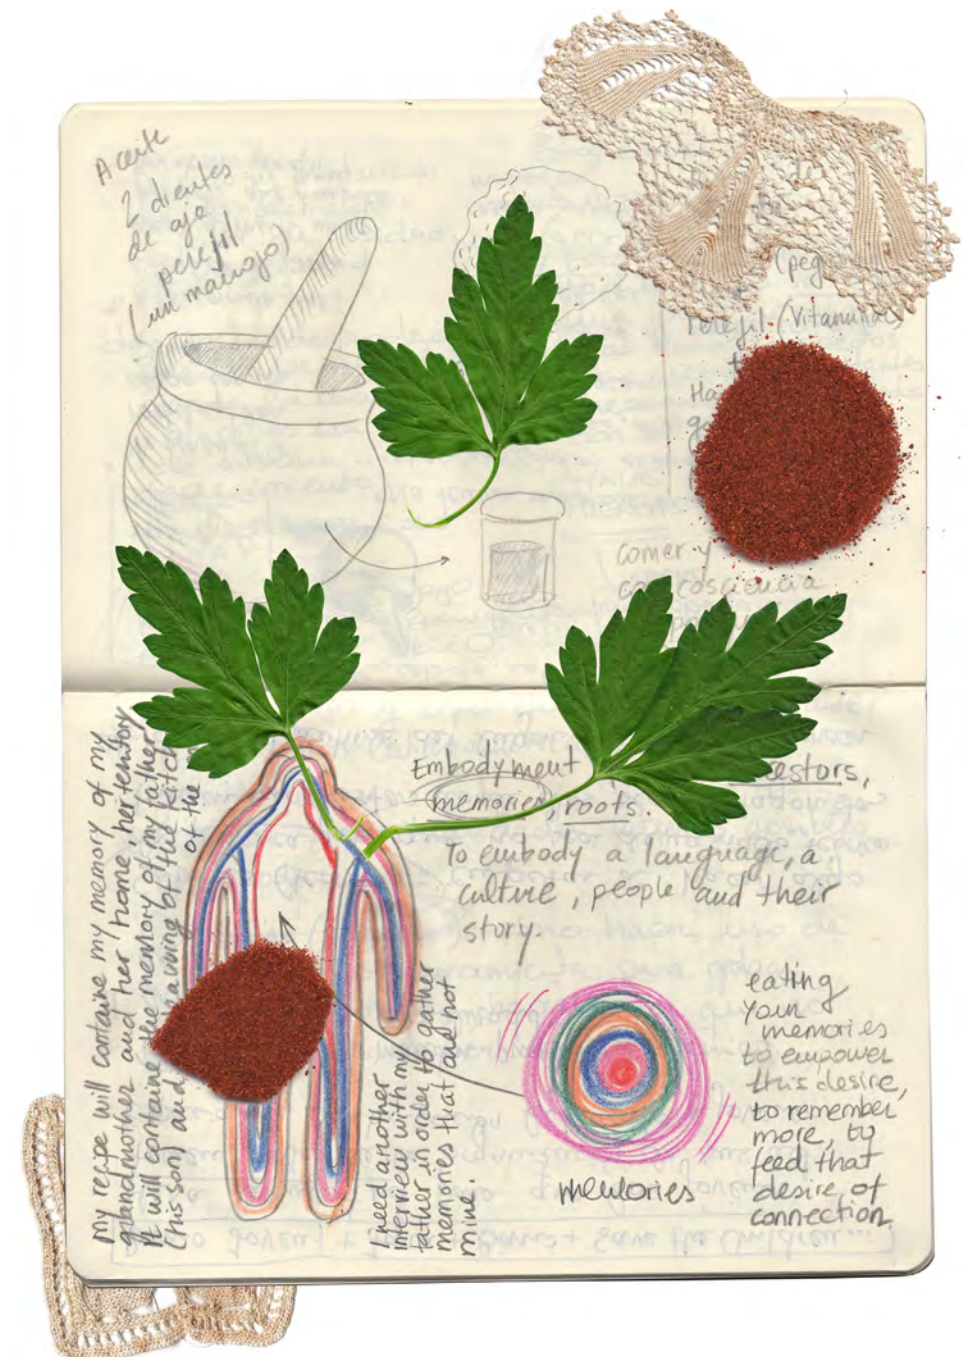 Aceite
2 dientes
de ajo
perejil
(un manojo)
de
(peg
Perejil (Vitaminas
Ha
comer y
con cosciencia
Embodyment
estors,
memories, roots.
To embody a language, a
culture, people and their
story.
My recipe will containe my memory of my
grandmother and her home, her territory
It will containe the memory of my father
(his son) and
of the kitch
of the
I need another
interview with my
father in order to gather
memories that are not
mine.
memories
eating
your
memories
to empower
this desire,
to remember
more, to
feed that
desire of
connection